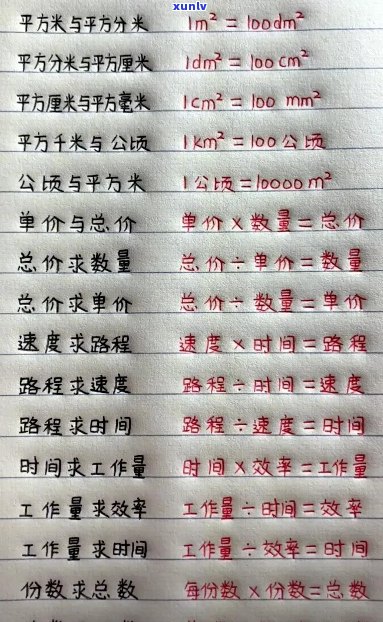 xunlv
平方米与平方分米 1m² = 100dm²
平方分米与平方厘米 1dm² = 100cm²
平方厘米与平方毫米 1cm² = 100 mm²
平方千米与公顷 1km² = 100公顷
公顷与平方米 1公顷=10000m²
单价与总价 单价×数量=总价
总价求数量 总价÷单价=数量
总价求单价 总价÷数量=单价
速度求路程 速度×时间=路程
路程求速度 路程÷时间=速度
路程求时间 路程÷速度=时间
时间求工作量 时间×效率=工作量
工作量求效率 工作量÷时间=效率
工作量求时间 工作量÷效率=时间
份数求总数 每份数×份数=总数